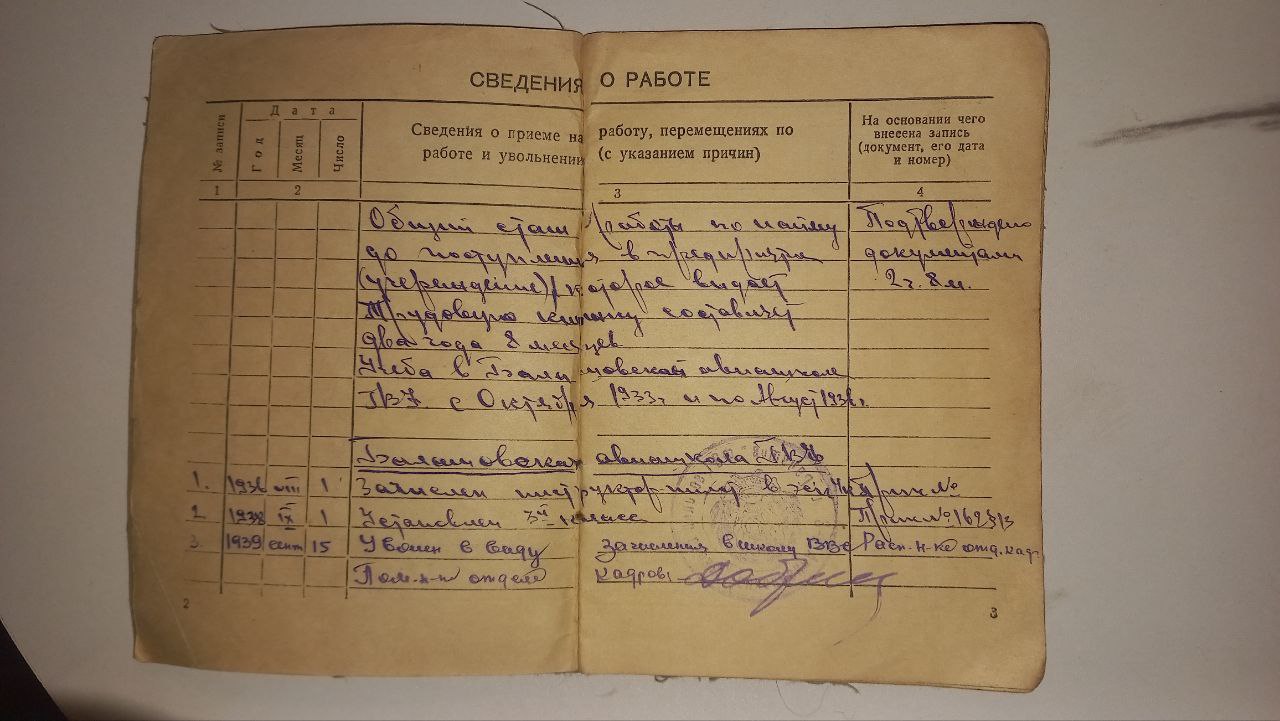 СВЕДЕНИЯ О РАБОТЕ
№ записи
Дата
Год
Месяц
Число
Сведения о приеме на работу, перемещениях по
работе и увольнении (с указанием причин)
На основании чего
внесена запись
(документ, его дата
и номер)
1 2 3 4
Общий стаж работы по найму Подтверждено
до поступления в предприятие документами
(учреждение), которое выдает 2 г. 8 м.
Трудовую книжку составляет
два года 8 месяцев
Учеба в Балашовской авиашколе
ГВФ с Октября 1933г. и по Август 1936г.
Балашовская авиашкола ГВФ
1. 1936 VIII 1 Зачислен инструктор пилот в Приказ №
2 1938 IX 1 Установлен 3й класс Прик №
3. 1939 сент 15 Уволен в виду зачисления в школу ВВС Расп. н-ка отд. кадр.
Пом. н-ка отдела кадров
2
3